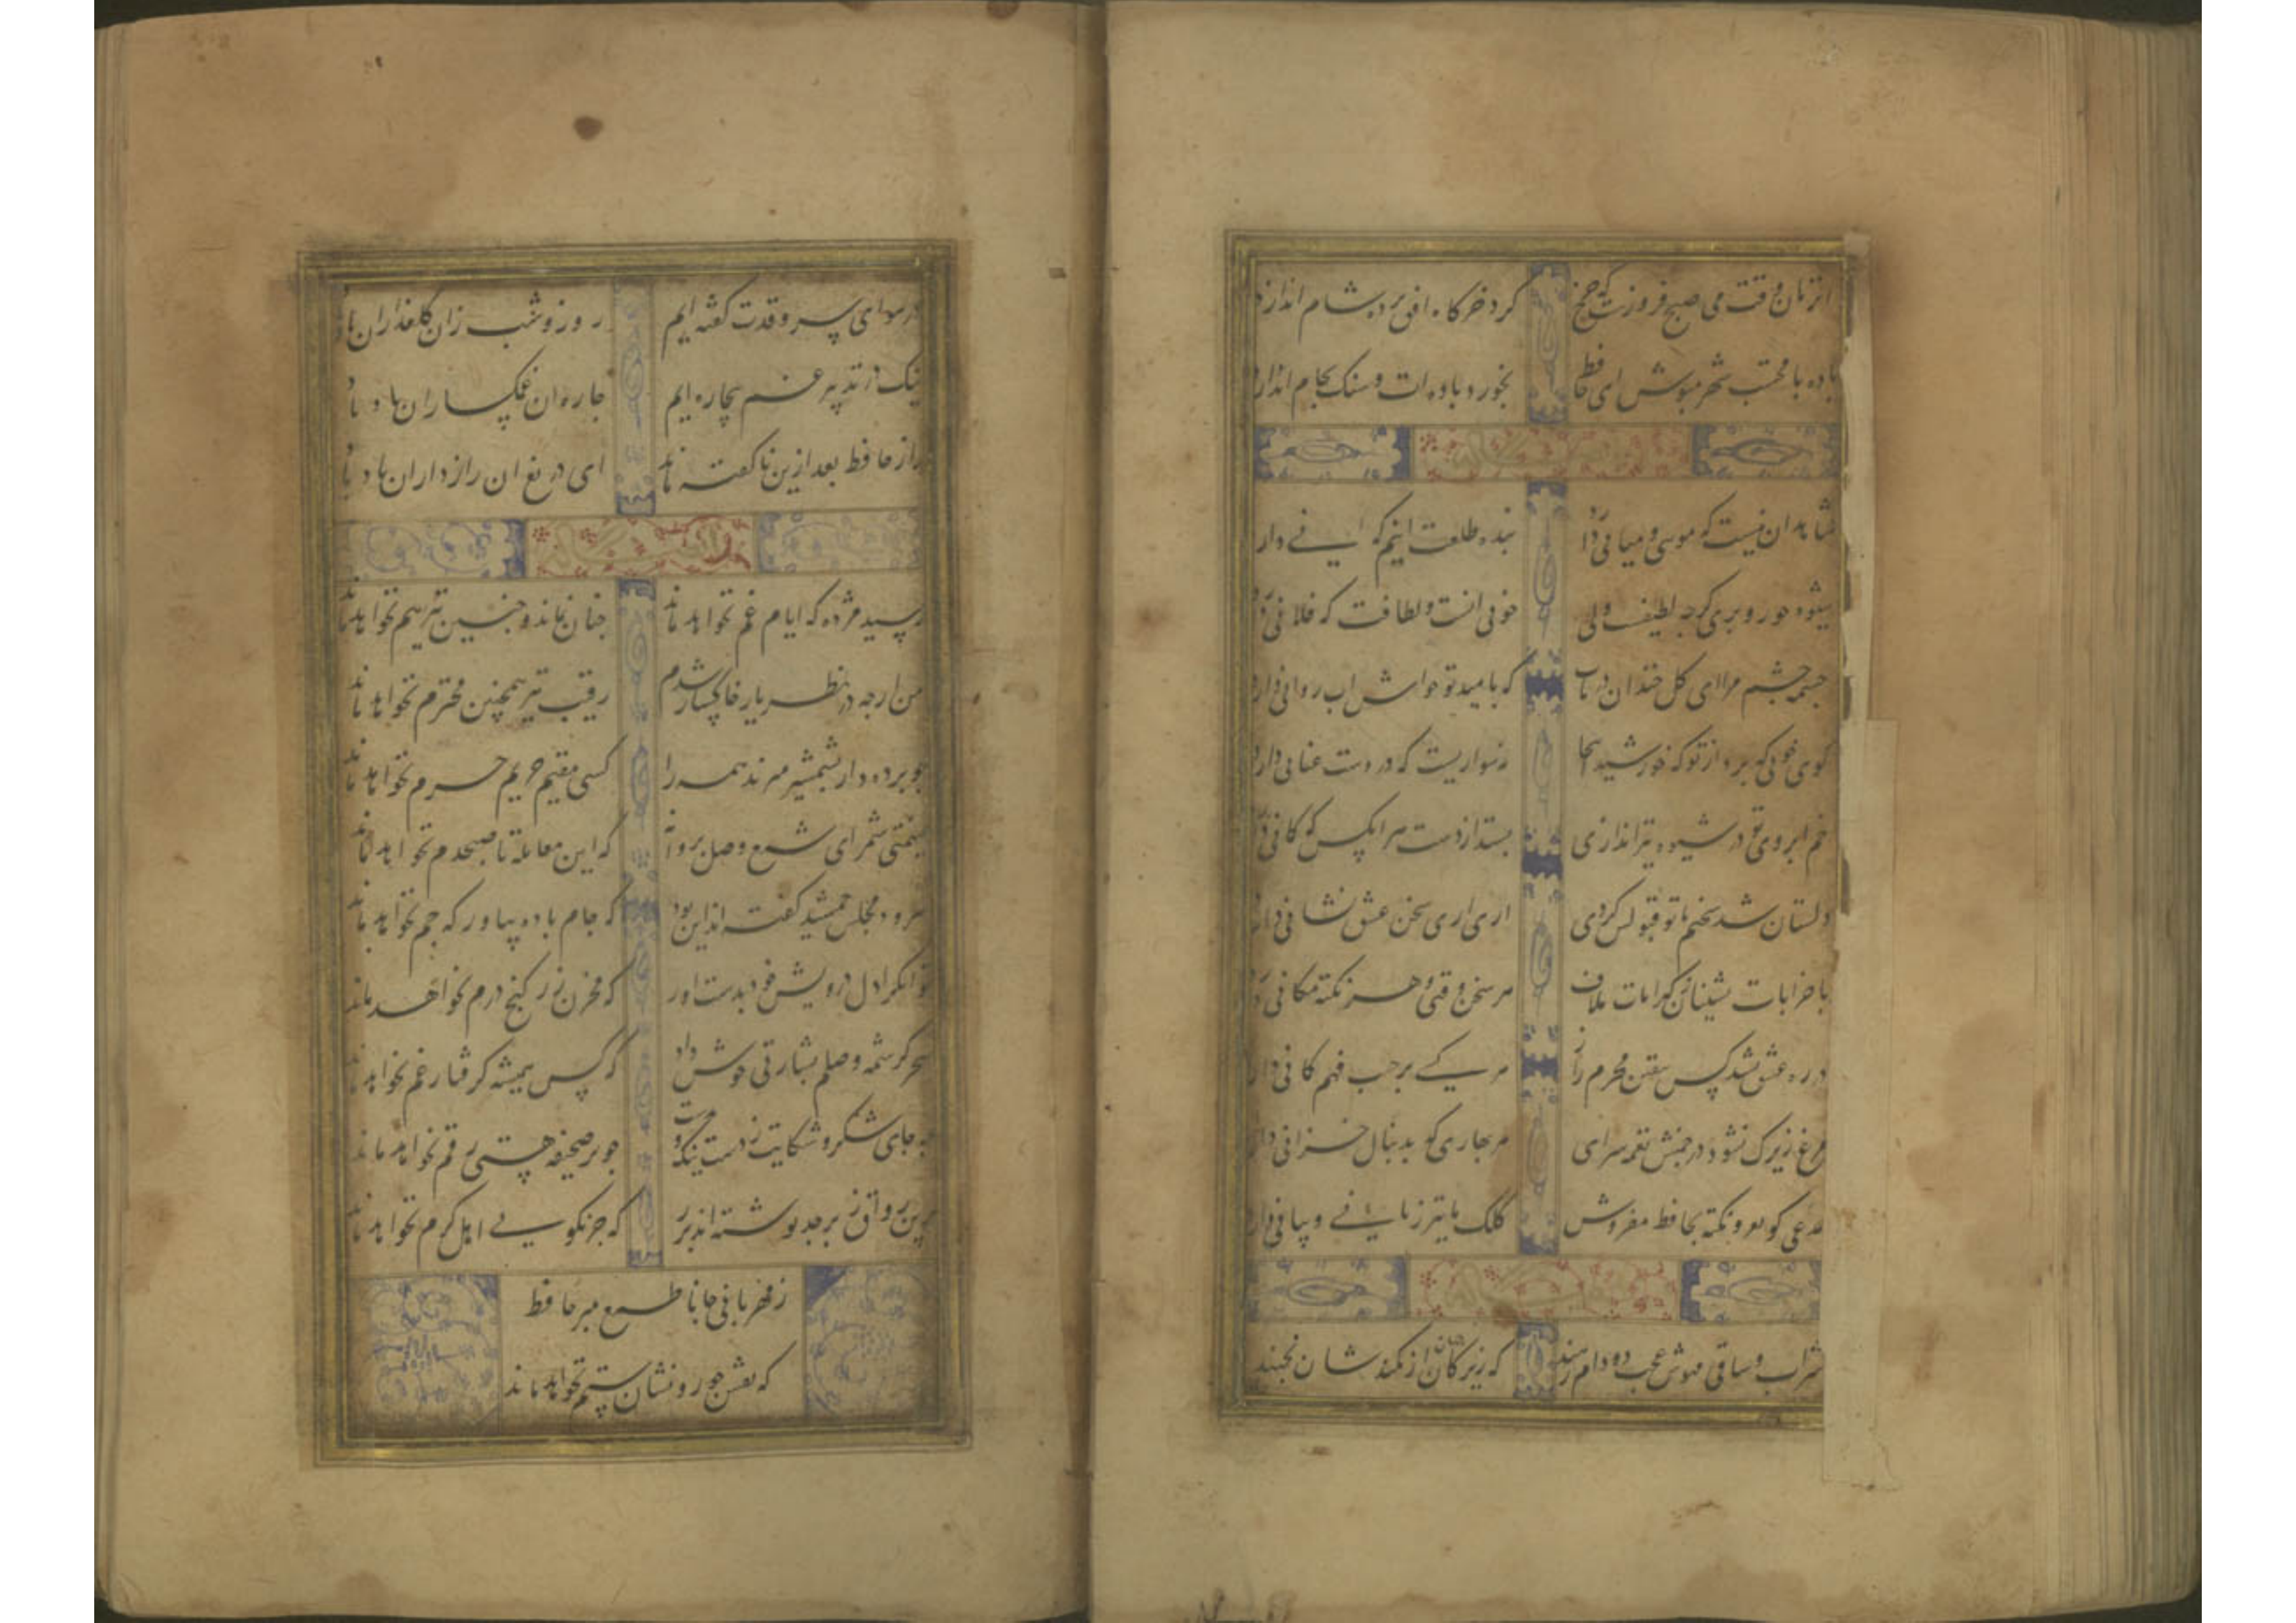 انزمان وقت می صبح فروزست که چرخ
کرد خرکاه افق پرده شام اندازد
باده با محتسب شهر منوش ای حافظ
بخورد باده ات و سنک بجام اندازد
شاهد ان نیست که موسی و میانی دارد
بنده طلعت انیم که انی دارد
شیوه حور و پری کرچه لطیفست ولی
خوبی انست و لطافت که فلانی دارد
چشمه چشم مرا ای کل خندان دریاب
که بامید تو خوش اب روانی دارد
کوی خوبی که برد از تو که خورشید انجا
نه سواریست که در دست عنانی دارد
خم ابروی تو در شیوه تیراندازی
بستد از دست هر انکس که کمانی دارد
دلستان شد سخنم تا تو قبولش کردی
اری اری سخن عشق نشانی دارد
با خرابات نشینان ز کرامات ملاف
هر سخن وقتی و هر نکته مکانی دارد
در ره عشق نشد کس بیقین محرم راز
هر کسی بر حسب فهم کمانی دارد
مرغ زیرک نشود در چمنش نغمه سرای
هر بهاری که بدنبال خزانی دارد
مدعی کو لغز و نکته بحافظ مفروش
کلک ما نیز زبانی و بیانی دارد
شراب و ساقی مهوش عجب دو دام رهند
که زیرکان جهان از کمندشان نجهند
در هوای سرو قدت کفته ایم
روز و شب زان کلعذاران یاد باد
نیک در تدبیر غم بیچاره ایم
چاره ان غمکساران یاد باد
راز حافظ بعد ازین ناکفته ماند
ای دریغ ان رازداران یاد باد
رسید مژده که ایام غم نخواهد ماند
چنان نماند و چنین نیز هم نخواهد ماند
من ارچه در نظر یار خاکسار شدم
رقیب نیز همچنین محترم نخواهد ماند
چو پرده دار بشمشیر میزند همه را
کسی مقیم حریم حرم نخواهد ماند
غنیمتی شمر ای شمع وصل پروانه
که این معامله تا صبحدم نخواهد ماند
سرود مجلس جمشید کفته اند این بود
که جام باده بیاور که جم نخواهد ماند
توانکرا دل درویش خود بدست اور
که مخزن زر و کنج درم نخواهد ماند
سحر کرشمه وصلم بشارتی خوش داد
که کس همیشه کرفتار غم نخواهد ماند
چه جای شکر و شکایت ز دست نیک و بدست
چو بر صحیفه هستی رقم نخواهد ماند
برین رواق زبرجد نوشته اند بزر
که جز نکویی اهل کرم نخواهد ماند
ز مهربانی جانا طمع مبر حافظ
که نقش جور و نشان ستم نخواهد ماند